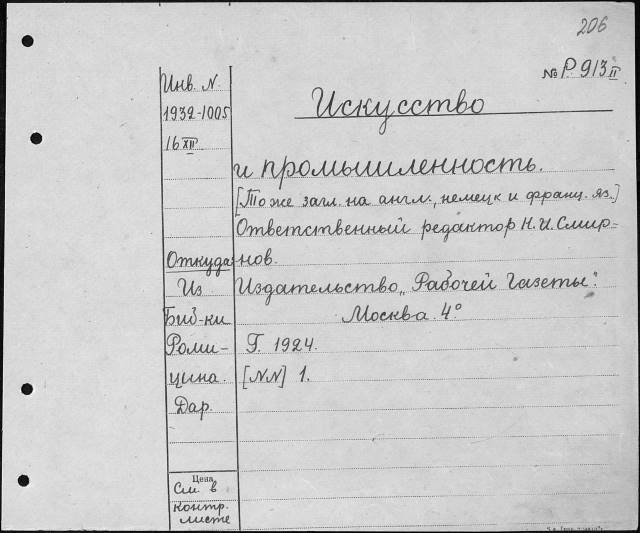 206
№ Р. 913 II
Инв. N.
1932-1005
16 XII
Искусство
и промышленность.
[То же загл. на англ., немецк и франц. яз.]
Ответственный редактор Н. И. Смир-
нов.
Издательство „Рабочей Газеты".
Москва. 4°
Г. 1924.
[NN] 1.
Откуда
Из
Биб-ки
Роми-
цина.
Дар.
Цена
См. в
контр.
листе